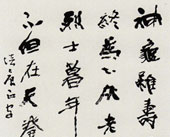 神龜雖壽
終為土灰老
烈士暮年
不但在天養